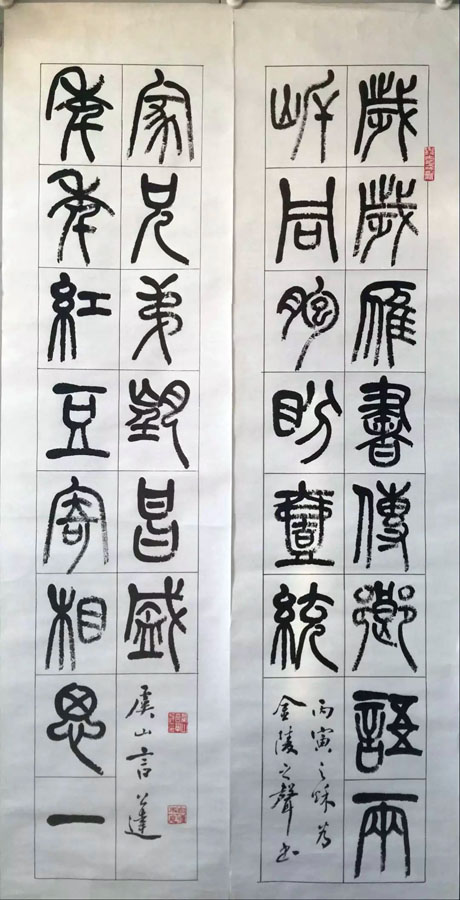 歲歲雁書傳鄉語兩
岸同胞盼壹統
丙寅之秋為
金陵之聲书
年年紅豆寄相思一
家兄弟望昌盛
虞山言公達